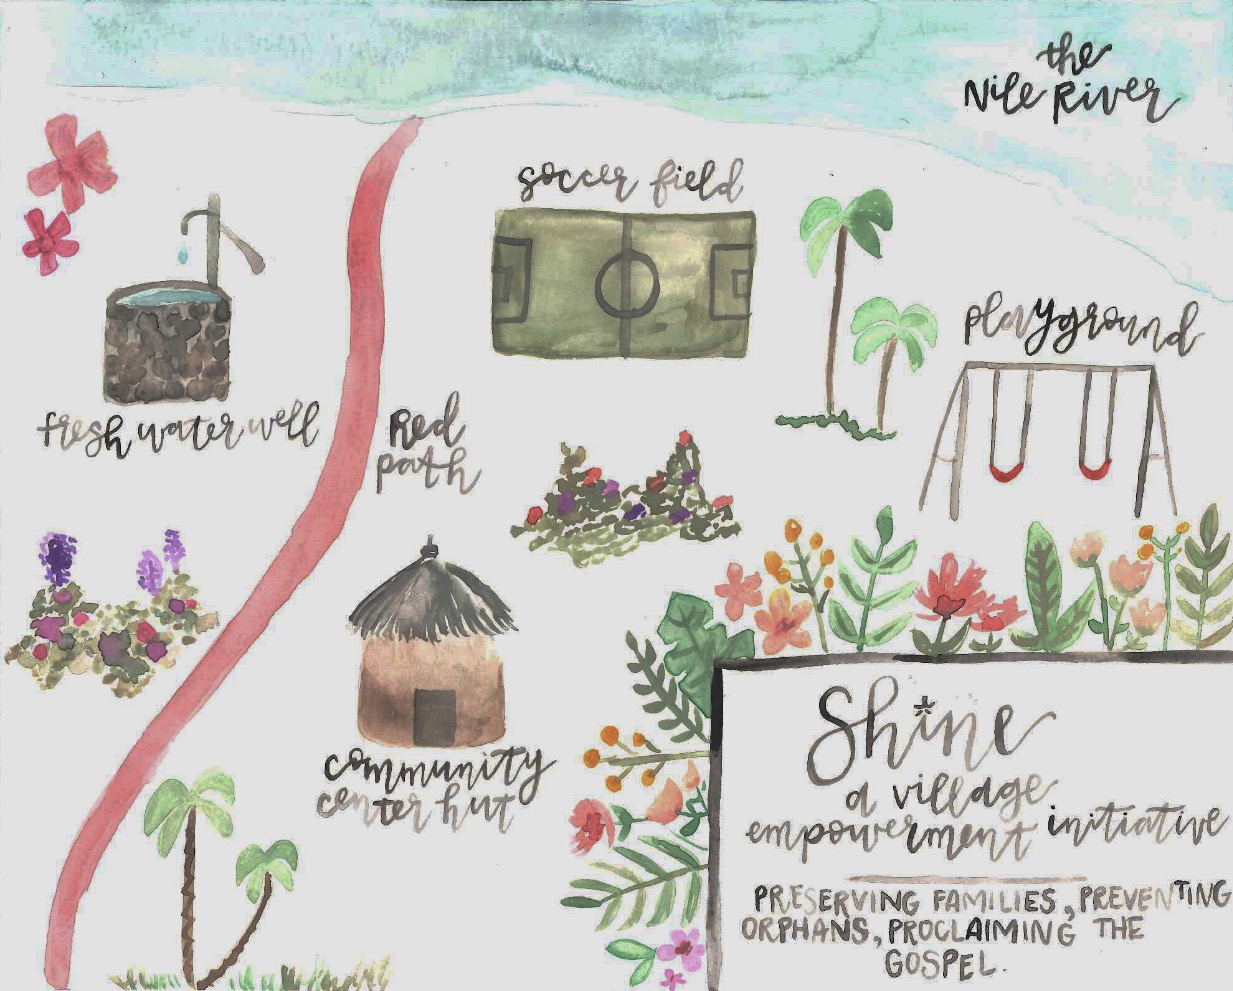 the
Nile River
soccer field
playground
fresh water well
Red
path
community
center hut
Shine
a village
empowerment initiative
PRESERVING FAMILIES, PREVENTING
ORPHANS, PROCLAIMING THE
GOSPEL.